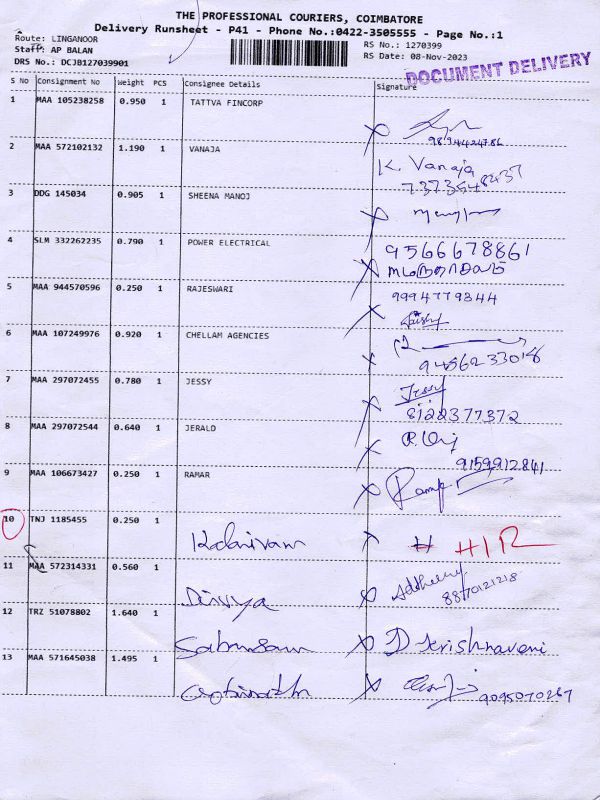 THE PROFESSIONAL COURIERS, COIMBATORE
Delivery Runsheet - P41 - Phone No.:0422-3505555 - Page No.:1
Route: LINGANOOR RS No.: 1270399
Staff: AP BALAN RS Date: 08-Nov-2023
DRS No.: DCJB127039901
DOCUMENT DELIVERY
S No Consignment No Weight PCS Consignee Details Signature
1 MAA 105238258 0.950 1 TATTVA FINCORP
2 MAA 572102132 1.190 1 VANAJA K. Vanaja
3 DDG 145034 0.905 1 SHEENA MANOJ
4 SLM 332262235 0.790 1 POWER ELECTRICAL 9566678861
5 MAA 944570596 0.250 1 RAJESWARI 9994779344
6 MAA 107249976 0.920 1 CHELLAM AGENCIES
7 MAA 297072455 0.780 1 JESSY Jessy
8122377372
8 MAA 297072544 0.640 1 JERALD
9159912841
9 MAA 106673427 0.250 1 RAMAR
10 TNJ 1185455 0.250 1
11 MAA 572314331 0.560 1 Divya
8870121218
12 TRZ 51078802 1.640 1 D Krishnaveni
13 MAA 571645038 1.495 1 9095070267